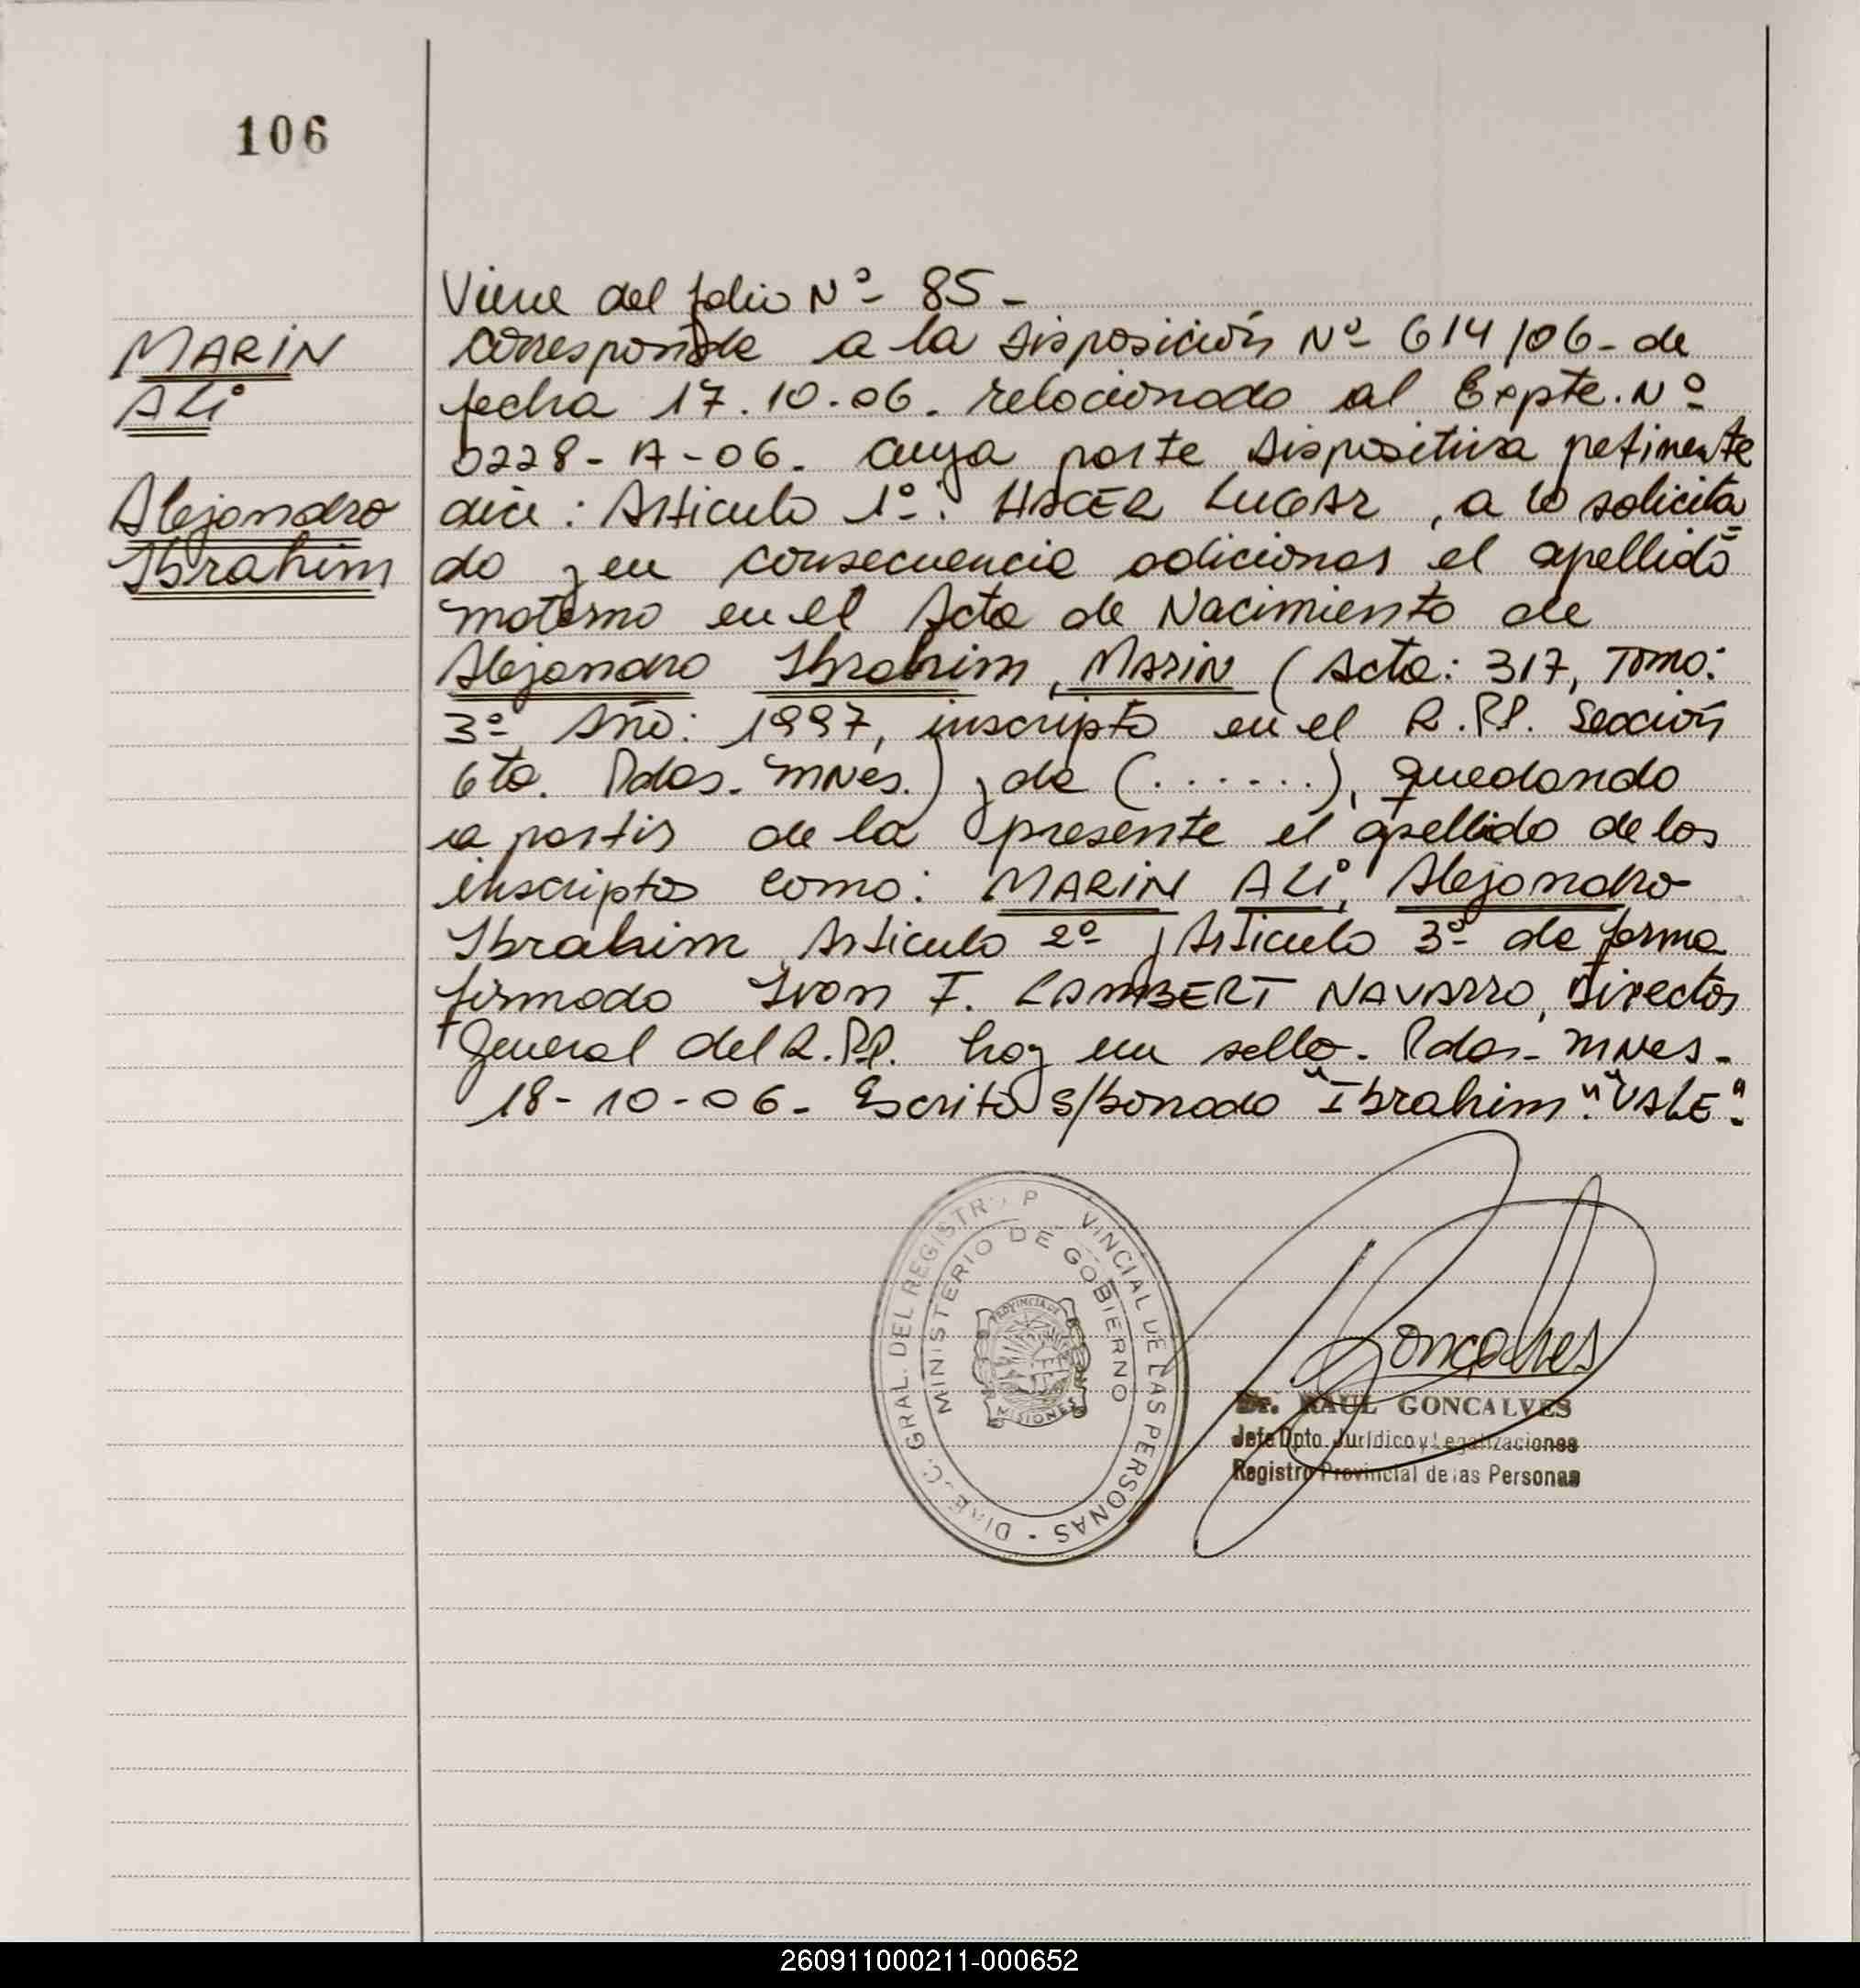 106
MARIN
ALi
Alejandro
Ibrahim
Viene del folio Nº 85 -
corresponde a la Disposición Nº 614/06- de
fecha 17.10.06. relacionado al Expte. Nº
0228- A-06. cuya parte dispositiva petinente
dice: Articulo 1º: HACER LUGAR, a lo solicita
do y en consecuencia adicionar el apellido
materno en el Acta de Nacimiento de
Alejandro Ibrahim, MARIN (Acta: 317, Tomo:
3º Año: 1997, inscripto en el R.P.P. Sección
6ta. Pdas. Mnes.) y de (......), quedando
a partir de la presente el apellido de los
inscriptos como: MARIN ALi, Alejandro
Ibrahim Articulo 2º y Articulo 3º de forma
firmado Ivan F. LAMBERT NAVARRO, Director
General del R.P.P. hay un sello. Pdas- Mnes-
18-10-06- Escrito s/borrado "Ibrahim". "VALE".
DIREC. GRAL. DEL REGISTRO P VINCIAL DE LAS PERSONAS -
MINISTERIO DE GOBIERNO
PROVINCIA DE
MISIONES
Goncalves
Dr. RAUL GONCALVES
Jefe Dpto. Jurídico y Legalizaciones
Registro Provincial de las Personas
260911000211-000652